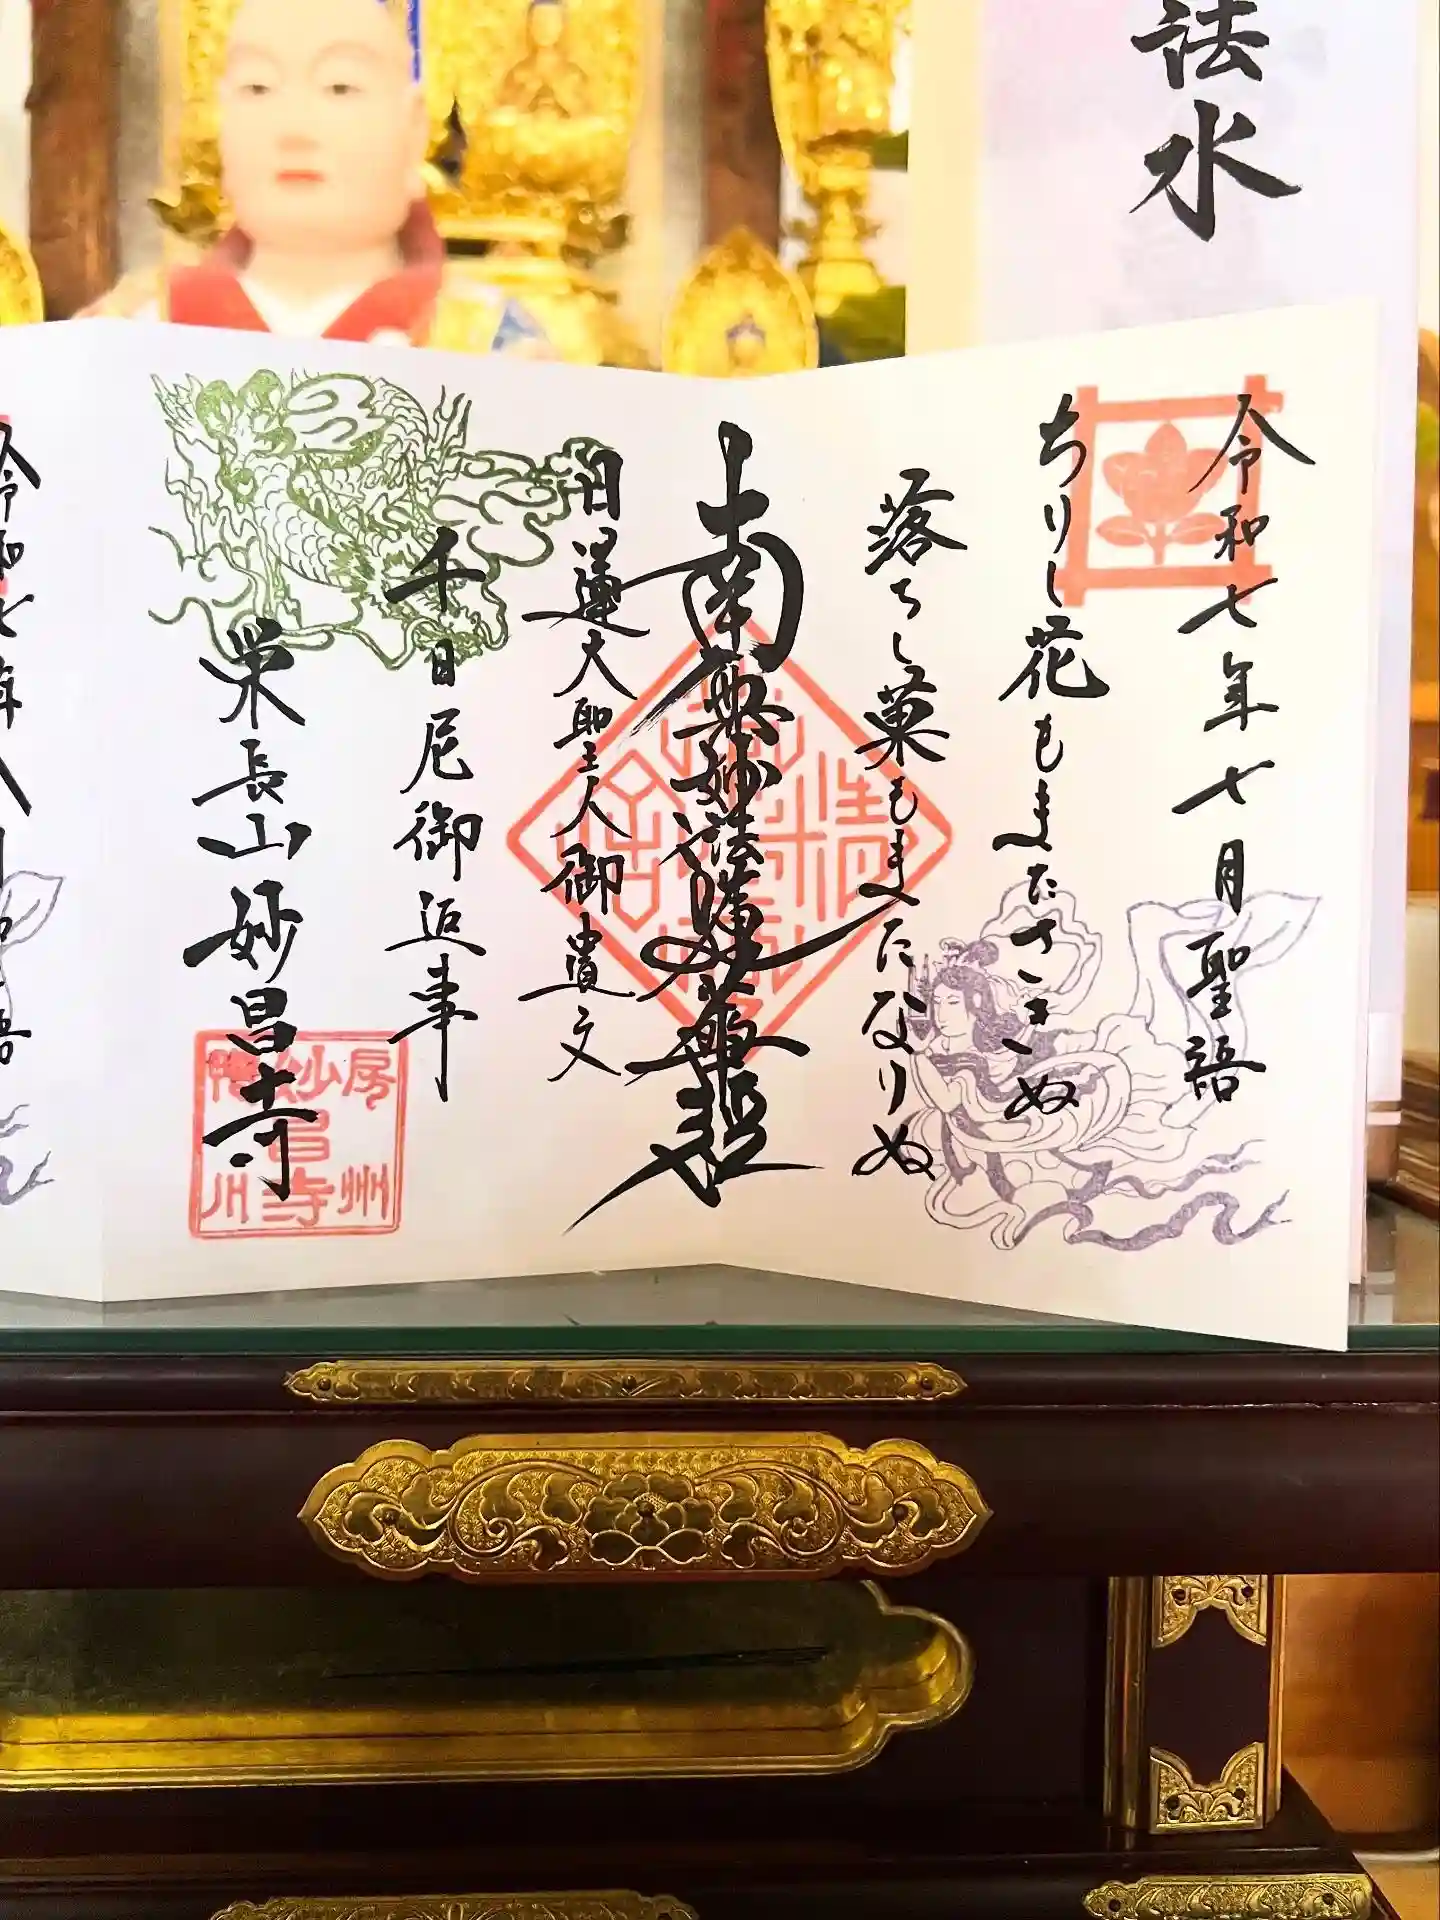 法水
令和七年七月聖語
ちりし花もまたさきぬ
落ちし菓もまたなりぬ
南無妙法蓮華経
日蓮大聖人御遺文
千日尼御返事
栄長山妙昌寺
房州
妙昌寺